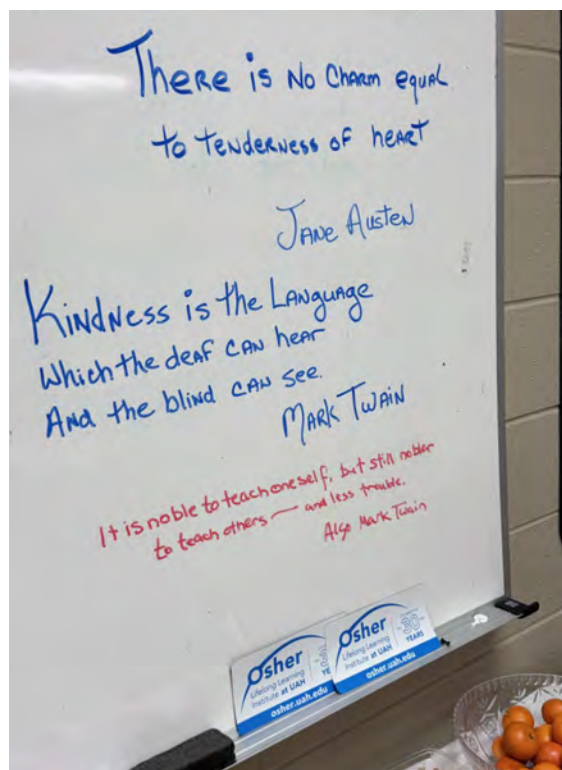 There is No Charm equal
to tenderness of heart
Jane Austen
Kindness is the Language
Which the deaf can hear
And the blind can see.
Mark Twain
It is noble to teach oneself, but still nobler
to teach others — and less trouble.
Also Mark Twain
Osher
Lifelong Learning
Institute at UAH
osher.uah.edu
Osher
Lifelong Learning
Institute at UAH
30
YEARS
osher.uah.edu